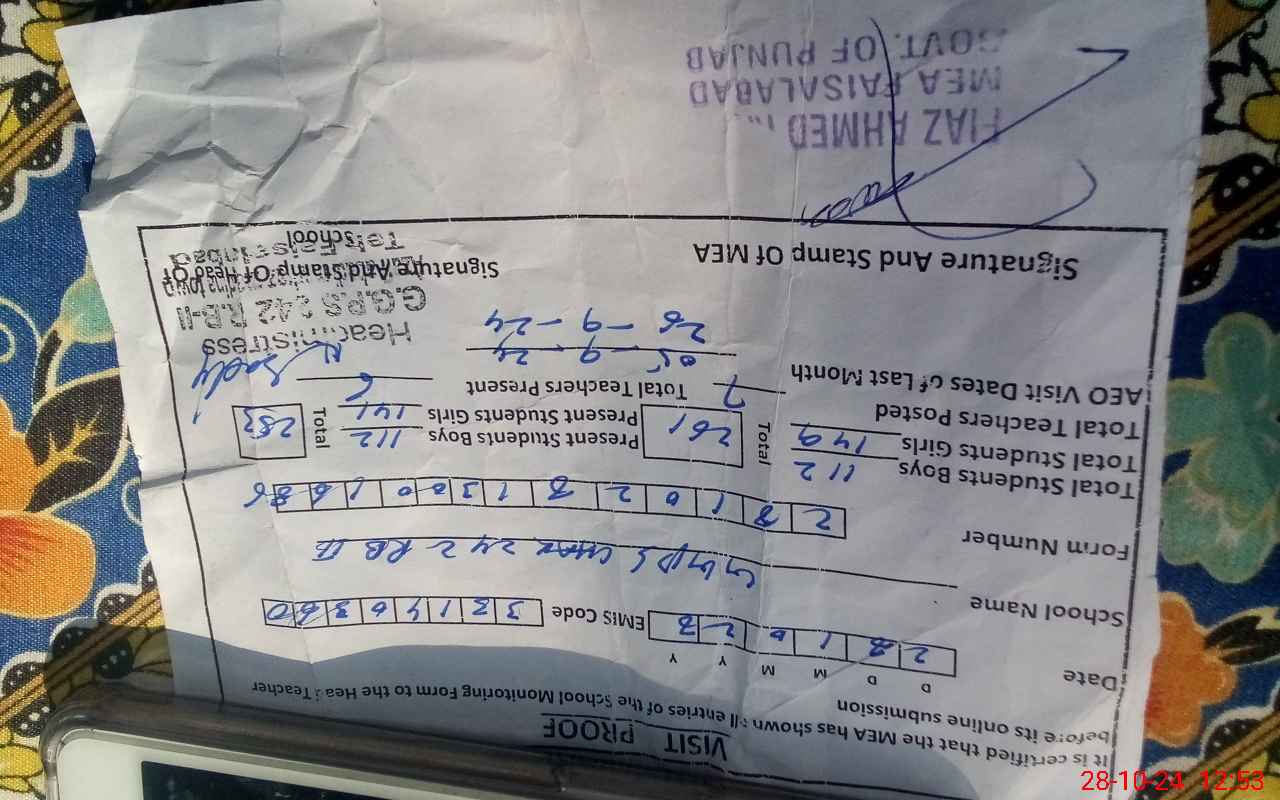 VISIT PROOF
It is certified that the MEA has shown all entries of the School Monitoring Form to the Head Teacher
before its online submission
D D M M Y Y
Date 2 8 1 0 2 EMIS Code 3 3 1 4 0 3 6 0
School Name GGPS CHAK 242 RB II
Form Number
Total Students Boys 112 Total 261 Present Students Boys 112 Total 253
Total Students Girls 149 Present Students Girls 141
Total Teachers Posted 7 Total Teachers Present 6
AEO Visit Dates of Last Month 05-9-24
28-9-24
Headmistress
G.G.P.S 242 R.B-II
Signature And Stamp Of MEA
Signature And Stamp Of Head Of
school
Faisalabad
FIAZ AHMED
MEA FAISALABAD
GOVT. OF PUNJAB
28-10-24 12:53